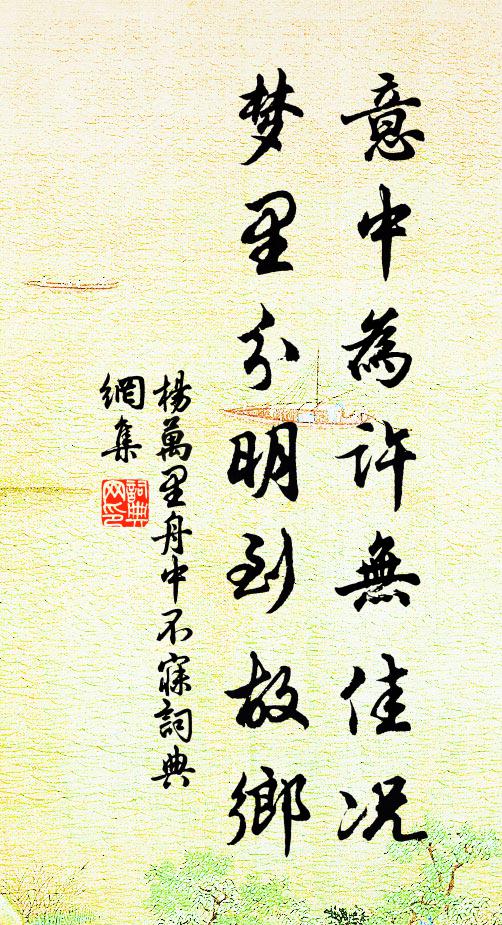 意中為許無佳况
梦里分明到故鄉
楊萬里舟中不寐詞典
網集
詞典
网印